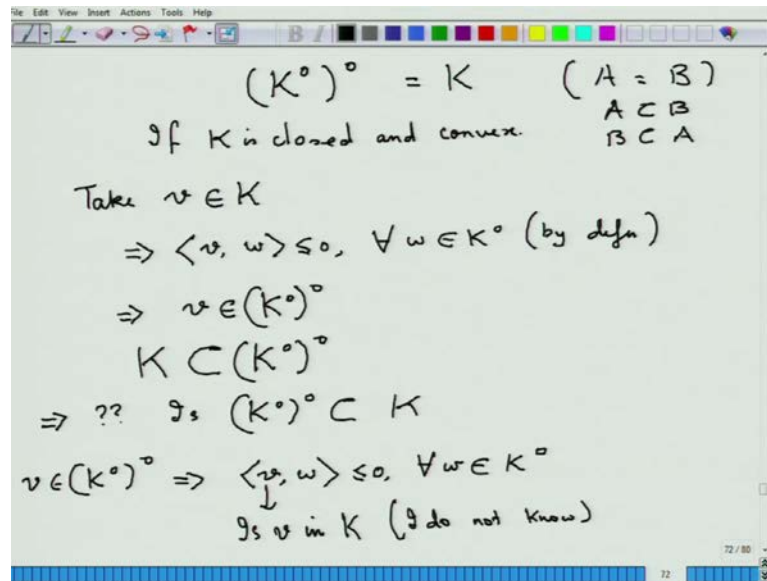 File Edit View Insert Actions Tools Help
B I
(K°)° = K (A = B)
A ⊂ B
If K is closed and convex. B ⊂ A
Take v ∈ K
⇒ ⟨v, w⟩ ≤ 0, ∀ w ∈ K° (by defn)
⇒ v ∈ (K°)°
K ⊂ (K°)°
⇒ ?? Is (K°)° ⊂ K
v ∈ (K°)° ⇒ ⟨v, w⟩ ≤ 0, ∀ w ∈ K°
↓
Is v in K (I do not know)
72 / 80
72